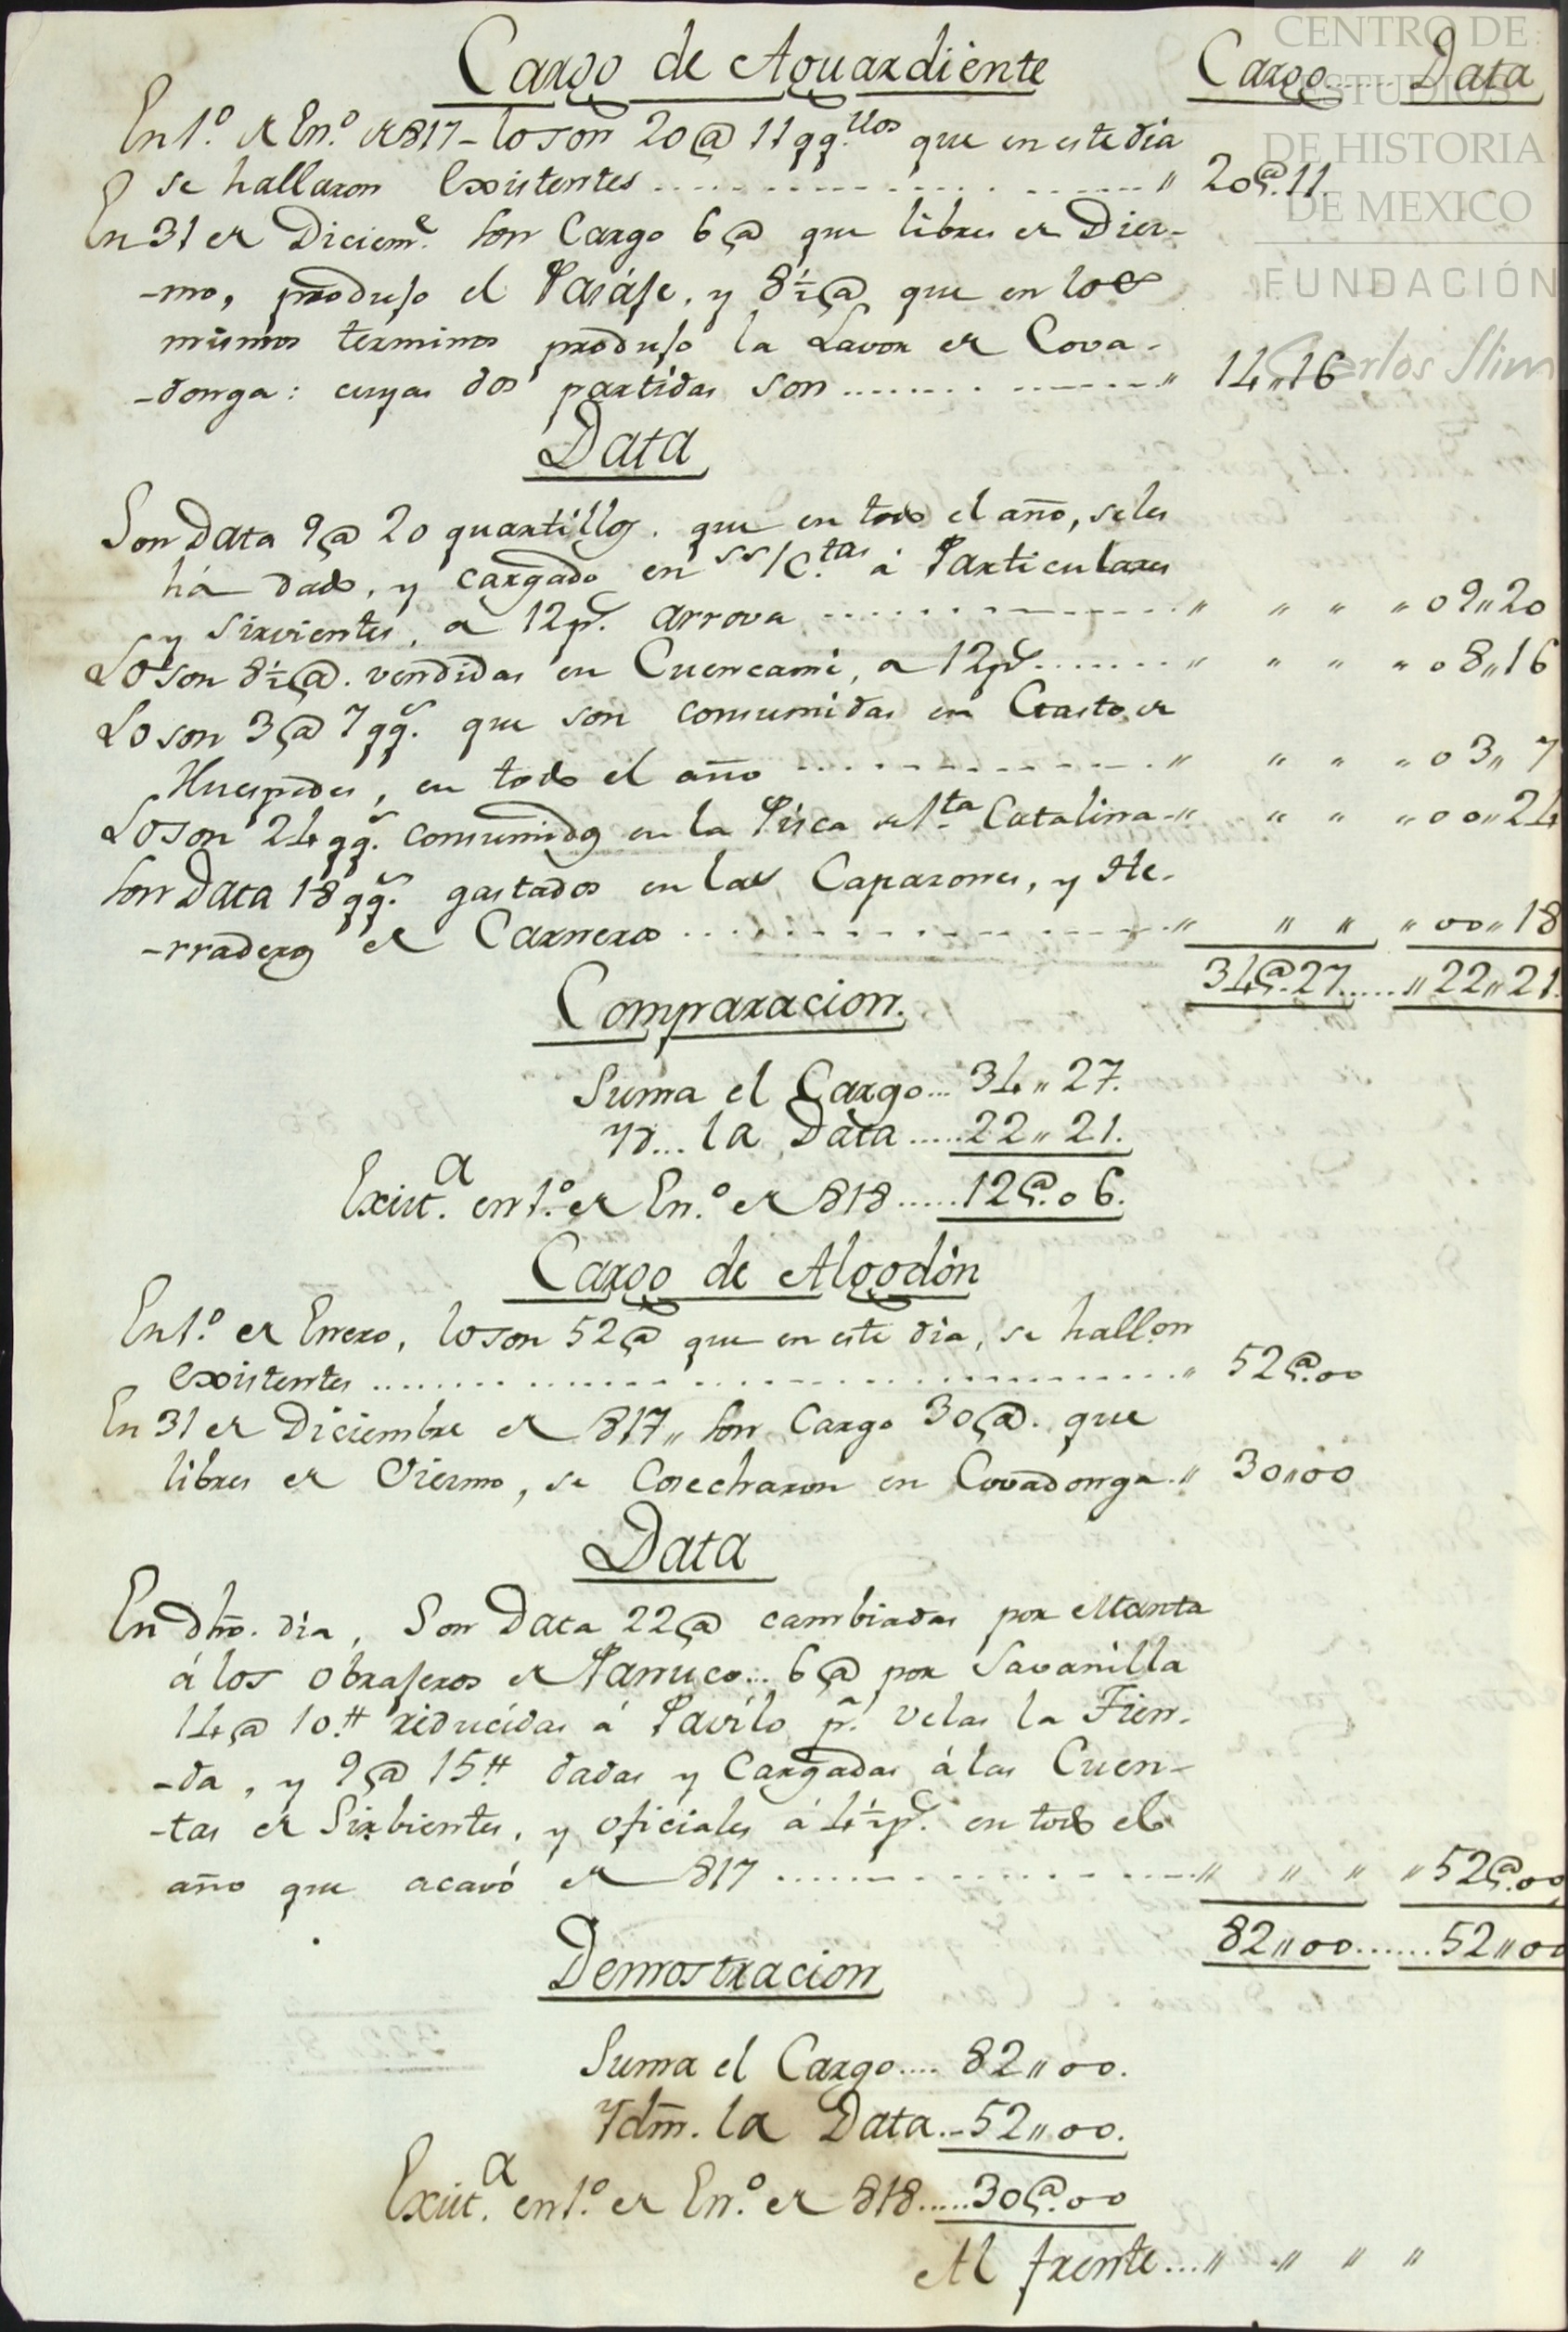 CENTRO DE
ESTUDIOS
DE HISTORIA
DE MEXICO
FUNDACIÓN
Carlos Slim
Cargo de Aguardiente Cargo...... Data
En 1.º de En.º de 817 - lo son 20@ 11 qq.llos que en este dia
se hallaron Existentes .......... " 20@.11.
En 31 de Diciem.e son Cargo 6@ que libres de Dies-
-mo, produjo el Pasaje, y 8½@ que en los
mismos terminos produjo la Lavor de Cova-
-donga: cuyas dos partidas son .......... " 14"16
Data
Son Data 9@ 20 quartillos. que en todo el año, se les
há dado, y cargado en ss/c.tas á Particulares
y Sirvientes, a 12 p.s arrova .......... " " " " 09"20
Lo son 8½@. vendidas en Cuencamé, a 12 p.s ....... " " " " 08"16
Lo son 3@ 7 qq.s que son consumidas en Gasto de
Huespedes, en todo el año .......... " " " " 03" 7
Lo son 24 qq.s consumidos en la Pisca de S.ta Catalina-" " " " 00"24
Son Data 18 qq.s gastados en las Capazones, y He-
-rraderos de Carneros .......... " " " " 00"18
34@.27..... " 22"21.
Comparacion.
Suma el Cargo... 34" 27.
Yd... la Data ..... 22" 21.
Exist.a en 1.º de En.º de 818 ..... 12@.06.
Cargo de Algodón
En 1.º de Enero, lo son 52@ que en este dia, se hallon
existentes .......... " 52@.00
En 31 de Diciembre de 817" son Cargo 30@. que
libres de Diesmo, se Cosecharon en Covadonga." 30"00
Data
En dho. dia, Son Data 22@ cambiadas por Manta
á los obrajeros de Panuco... 6@ por Savanilla
14@ 10 tt reducidas á Pavilo p.a Velas la Tien-
-da, y 9@ 15 tt dadas y Cargadas á las Cuen-
-tas de Sirbientes, y oficiales á 4½ p.s en todo el
año que acavó de 817 .......... " " " " 52@.00
82"00...... 52"00
Demostracion
Suma el Cargo.... 82"00.
Ydm. la Data..-52"00.
Exist.a en 1.º de En.º de 818.....30@.00
Al frente...." " " "